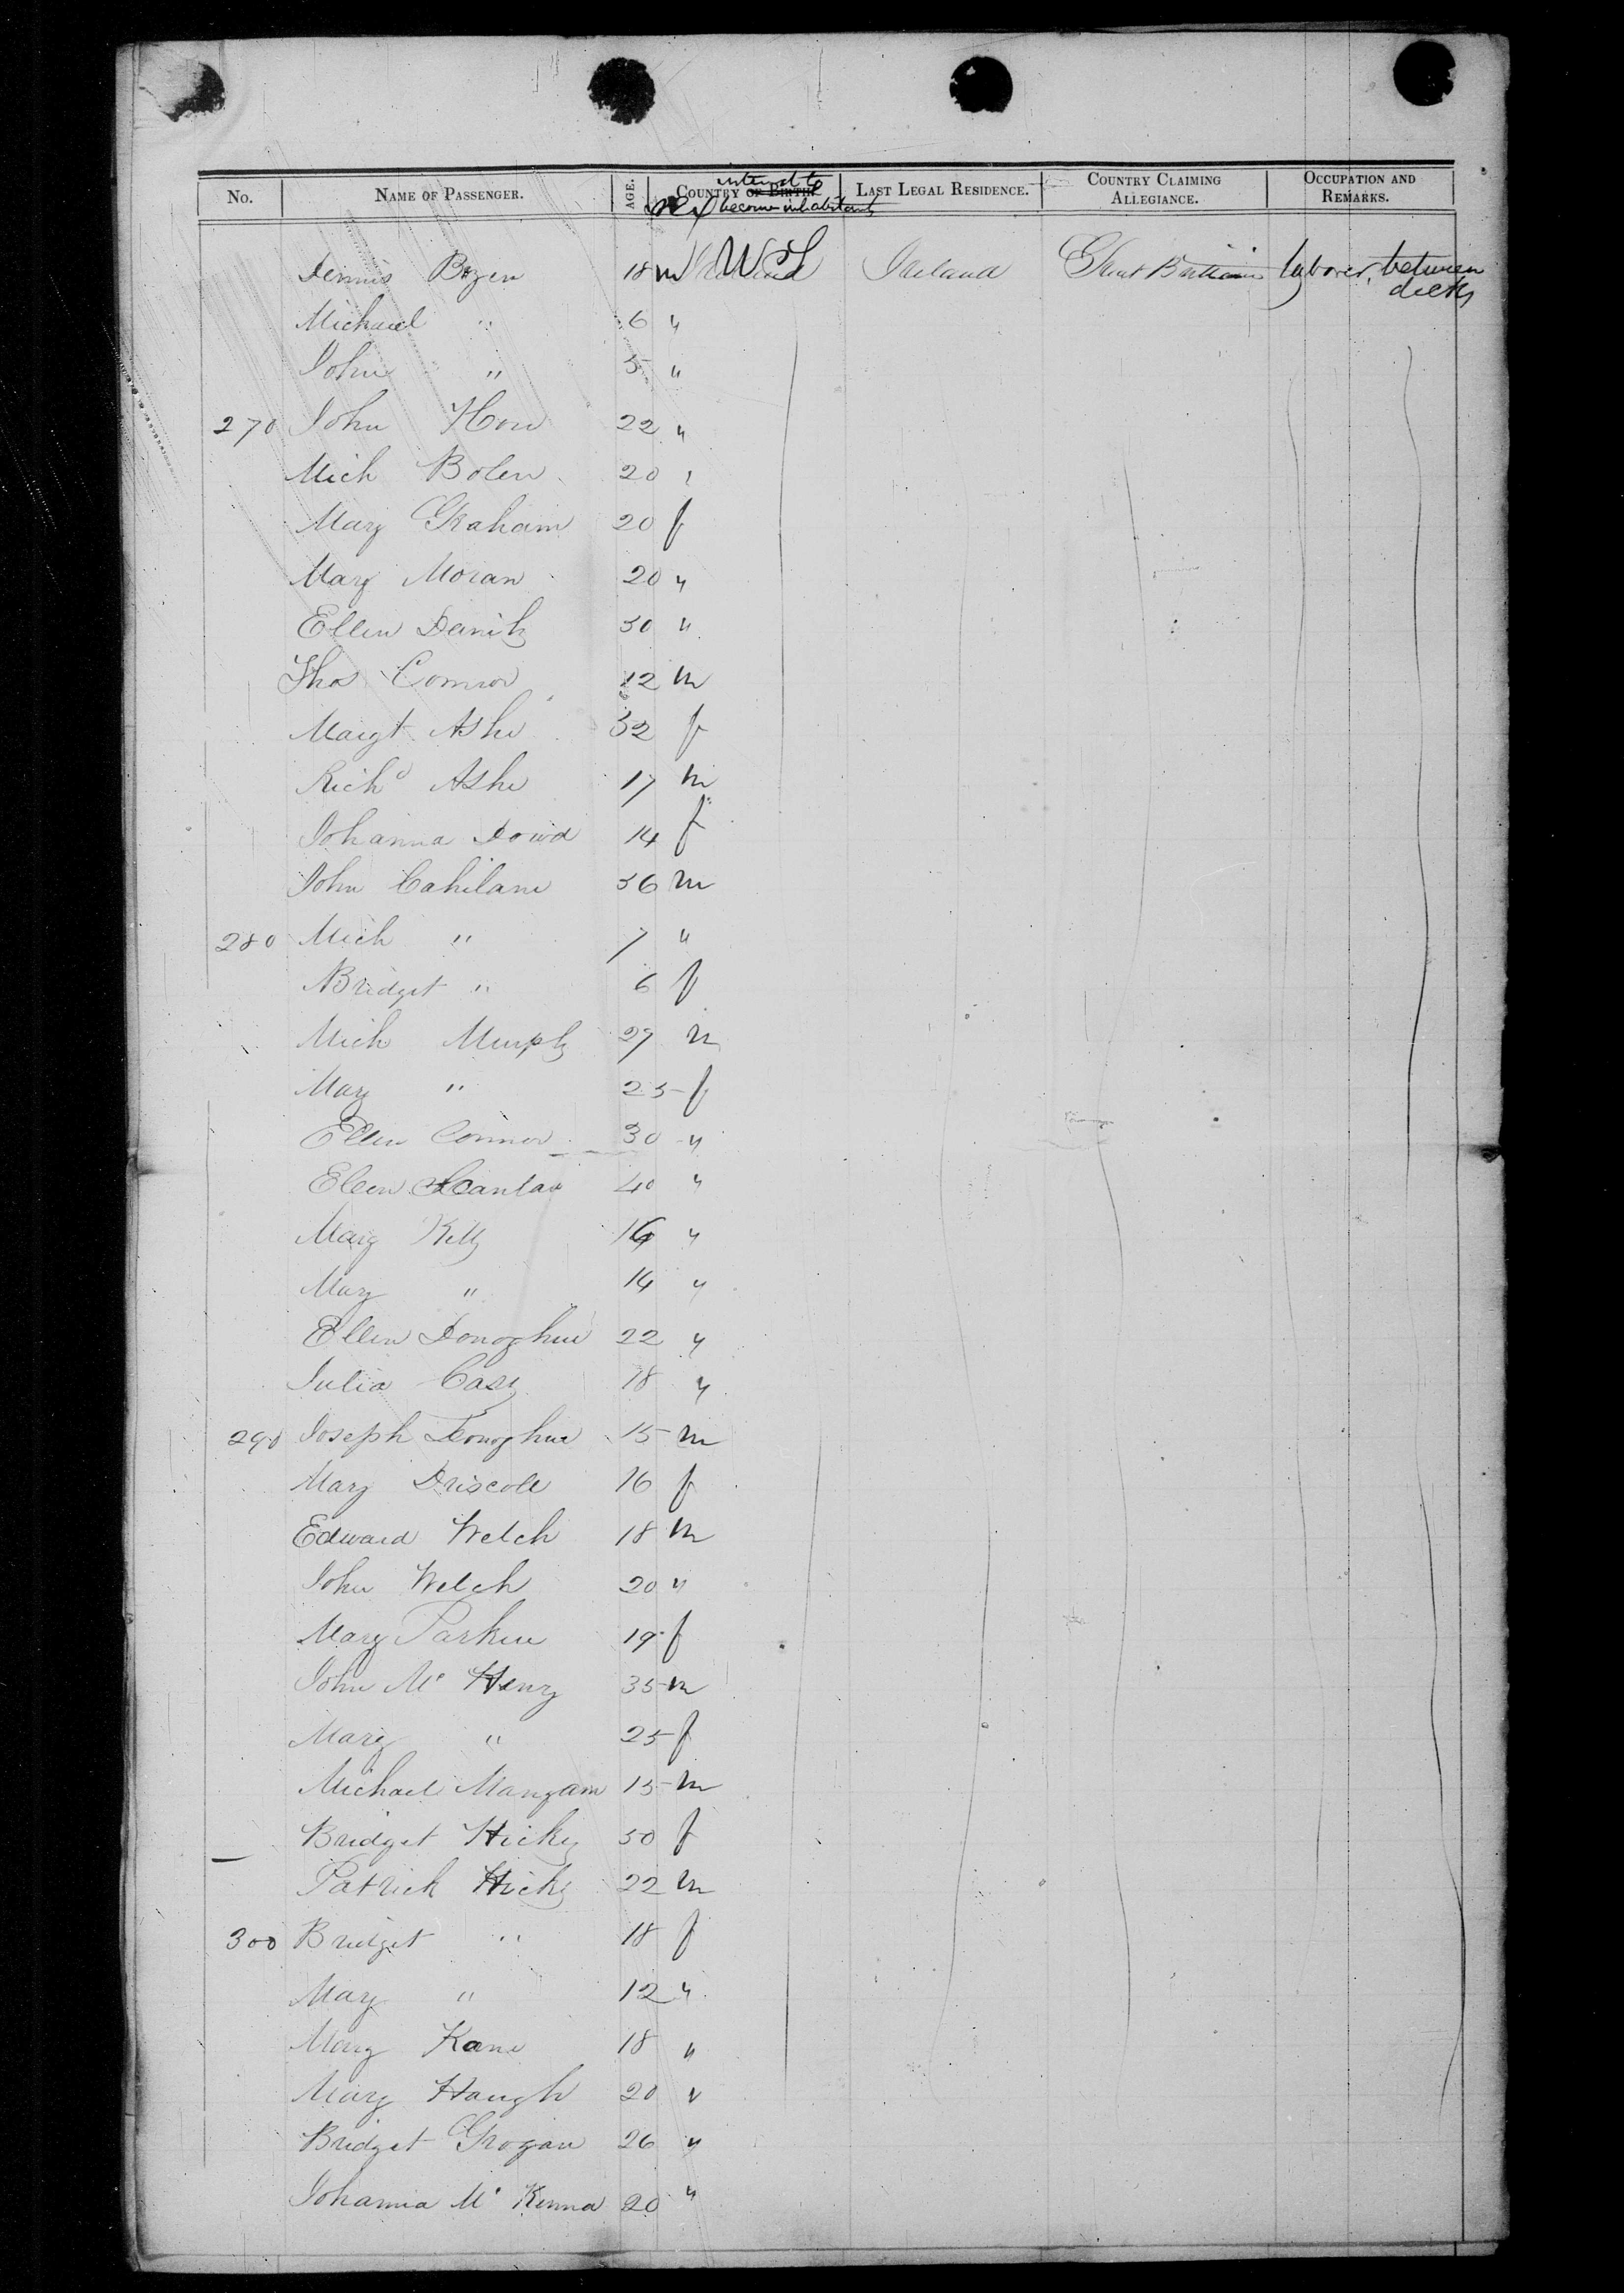 No. NAME OF PASSENGER. AGE. Sex COUNTRY OF BIRTH intend to become inhabitants LAST LEGAL RESIDENCE. COUNTRY CLAIMING ALLEGIANCE. OCCUPATION AND REMARKS.
Dennis 18 m U S Ireland Great Britain laborer, between decks
Michael " 6 "
John " 5 "
270 John How 22 "
Mich Bolen 20 "
Mary Graham 20 f
Mary Moran 20 "
Ellen 30 "
Thos Connor 12 m
Margt Ashe 32 f
Richd Ashe 17 m
Johanna Dowd 14 f
John Cahilane 36 m
280 Mich " 7 "
Bridget " 6 f
Mich Murphy 27 m
Mary " 25 f
Ellen Connor 30 "
Ellen Scanlan 40 "
Marg Kelly 16 "
Mary " 14 "
Ellen Donoghue 22 "
Julia Casy 18 "
290 Joseph Donoghue 15 m
Mary Driscoll 16 f
Edward Welch 18 m
John Welch 20 "
Mary Parker 19 f
John Mc Henry 35 m
Mary " 25 f
Michael Mangam 15 m
Bridget Hicky 50 f
Patrick Hicky 22 m
300 Bridget " 18 f
Mary " 12 "
Mary Kane 18 "
Mary Haugh 20 "
Bridget Grogan 26 "
Johanna Mc Kenna 20 "